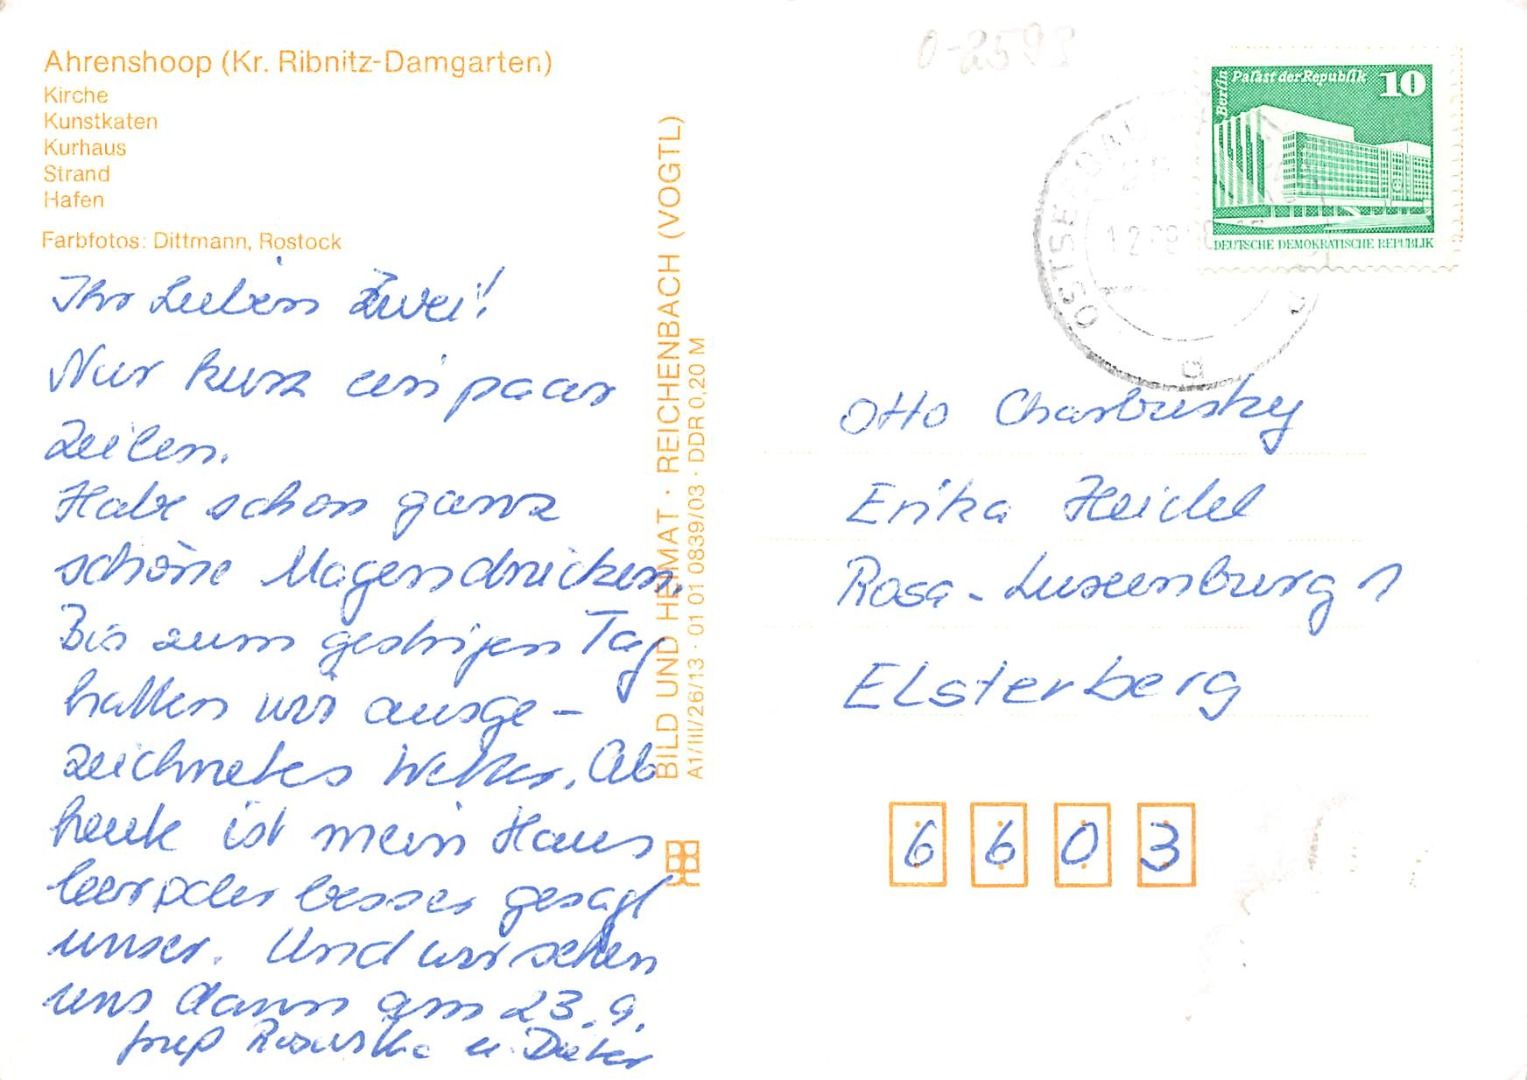 Ahrenshoop (Kr. Ribnitz-Damgarten)
Kirche
Kunstkaten
Kurhaus
Strand
Hafen
Farbfotos: Dittmann, Rostock
Ihr Lieben Zwei!
Nur kurz ein paar
Zeilen.
Habe schon ganz
schöne Magendrücken.
Bis zum gestrigen Tag
hatten wir ausge-
zeichnetes Wetter. Ab
heute ist mein Haus
leer oder besser gesagt
unser. Und wir sehen
uns dann am 23.9.
u. Dieter
BILD UND HEIMAT · REICHENBACH (VOGTL)
A1/III/26/13 · 01 01 0839/03 · DDR 0,20 M
0-2598
Berlin
Palast der Republik
10
DEUTSCHE DEMOKRATISCHE REPUBLIK
OSTSEEBAD
12.09
d
Otto
Erika Heidel
Rosa-Luxenburg 1
Elsterberg
6603